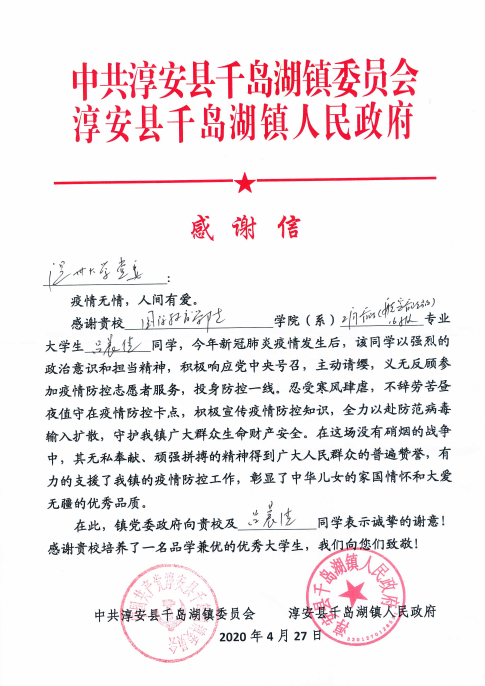 中共淳安县千岛湖镇委员会
淳安县千岛湖镇人民政府
感谢信
大学党委：
疫情无情，人间有爱。
感谢贵校 学院（系） 专业
大学生 吕晨佳 同学，今年新冠肺炎疫情发生后，该同学以强烈的
政治意识和担当精神，积极响应党中央号召，主动请缨，义无反顾参
加疫情防控志愿者服务，投身防控一线。忍受寒风肆虐，不辞劳苦昼
夜值守在疫情防控卡点，积极宣传疫情防控知识，全力以赴防范病毒
输入扩散，守护我镇广大群众生命财产安全。在这场没有硝烟的战争
中，其无私奉献、顽强拼搏的精神得到广大人民群众的普遍赞誉，有
力的支援了我镇的疫情防控工作，彰显了中华儿女的家国情怀和大爱
无疆的优秀品质。
在此，镇党委政府向贵校及 吕晨佳 同学表示诚挚的谢意！
感谢贵校培养了一名品学兼优的优秀大学生，我们向您们致敬！
中共淳安县千岛湖镇委员会 淳安县千岛湖镇人民政府
2020 年 4 月 27 日
淳安县千岛湖镇人民政府